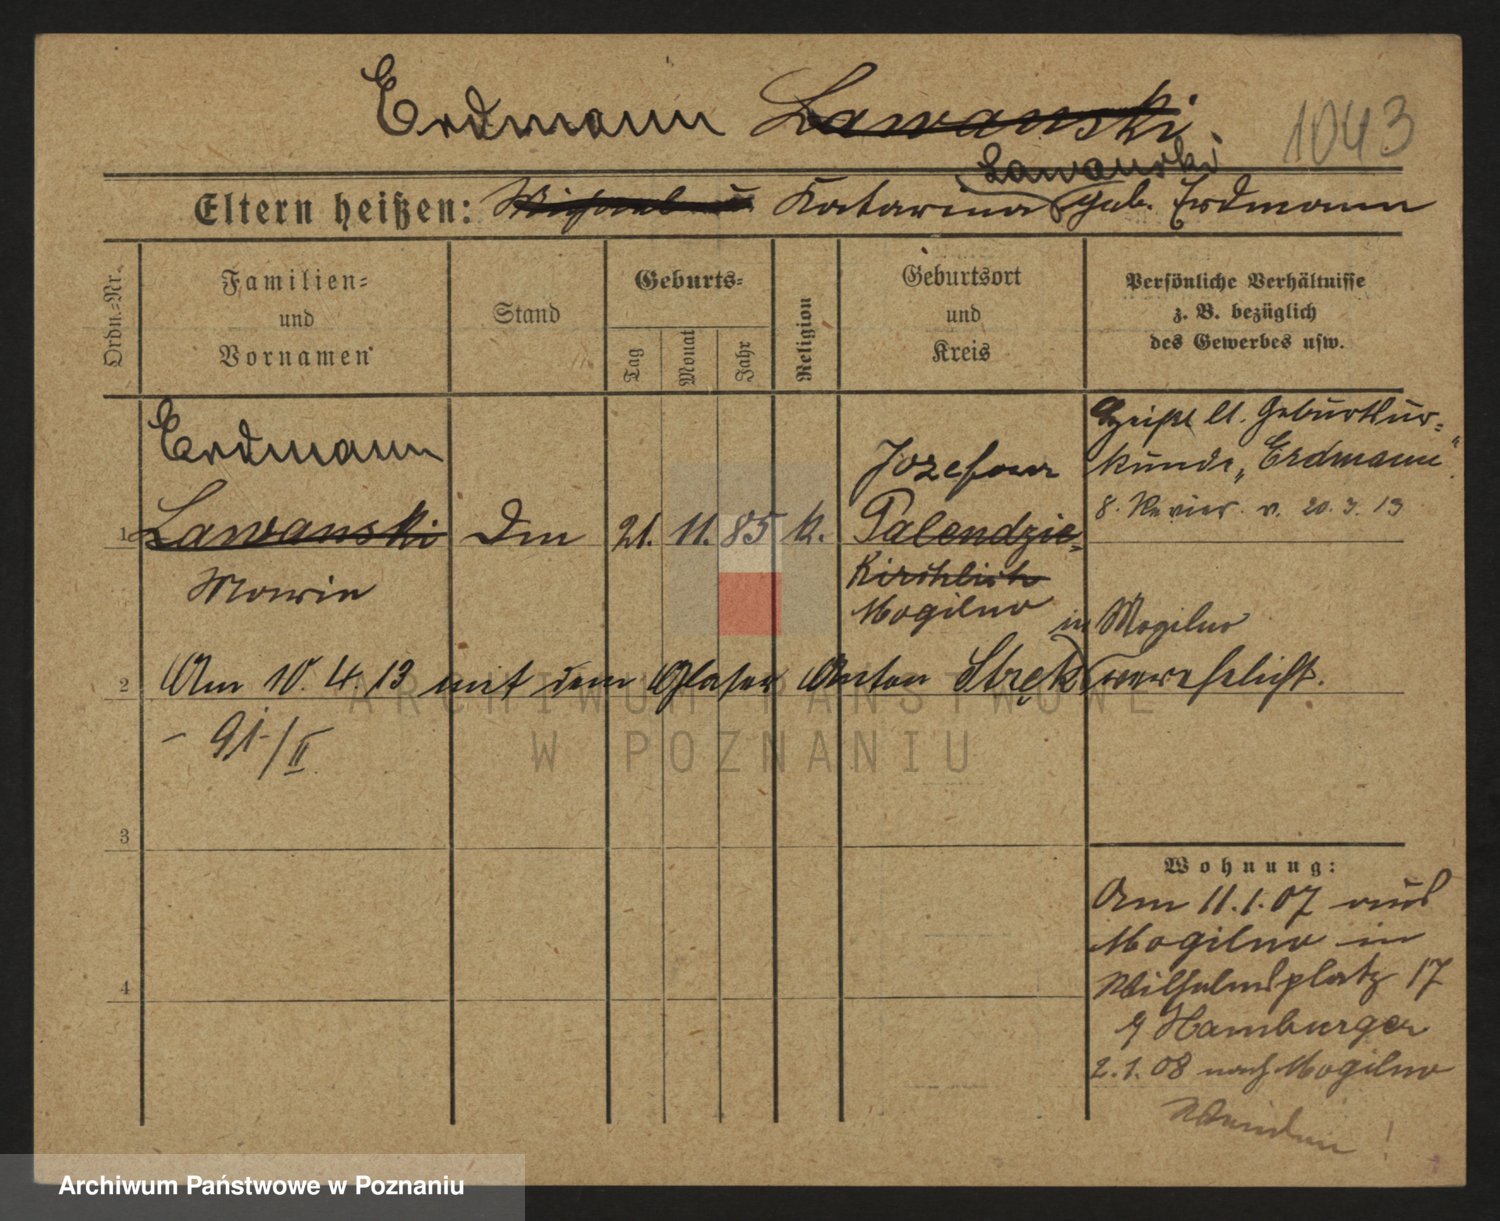 Erdmann Lawanski
1043
Lawanski
Eltern heißen: Michael u Katarina geb. Erdmann
Ordn.-Nr.
Familien-
und
Vornamen
Stand
Geburts-
Tag
Monat
Jahr
Religion
Geburtsort
und
Kreis
Persönliche Verhältnisse
z. B. bezüglich
des Gewerbes usw.
Erdmann
1 Lawanski
Marie
21. 11. 85 k.
Jozefowo
Palendzie-
Kirchlich
Mogilno
heißt lt. Geburtsur-
kunde „Erdmann“
8. Revier v. 20. 3. 13
in Mogilno
2 Am 10. 4. 13 mit dem Glaser Anton Stręk verehelicht.
- 91/II
3
4
Wohnung:
Am 11.1.07 aus
Mogilno in
Wilhelmsplatz 17
Hamburger
2.1.08 nach Mogilno
Wenden!
ARCHIWUM PAŃSTWOWE
W POZNANIU
Archiwum Państwowe w Poznaniu